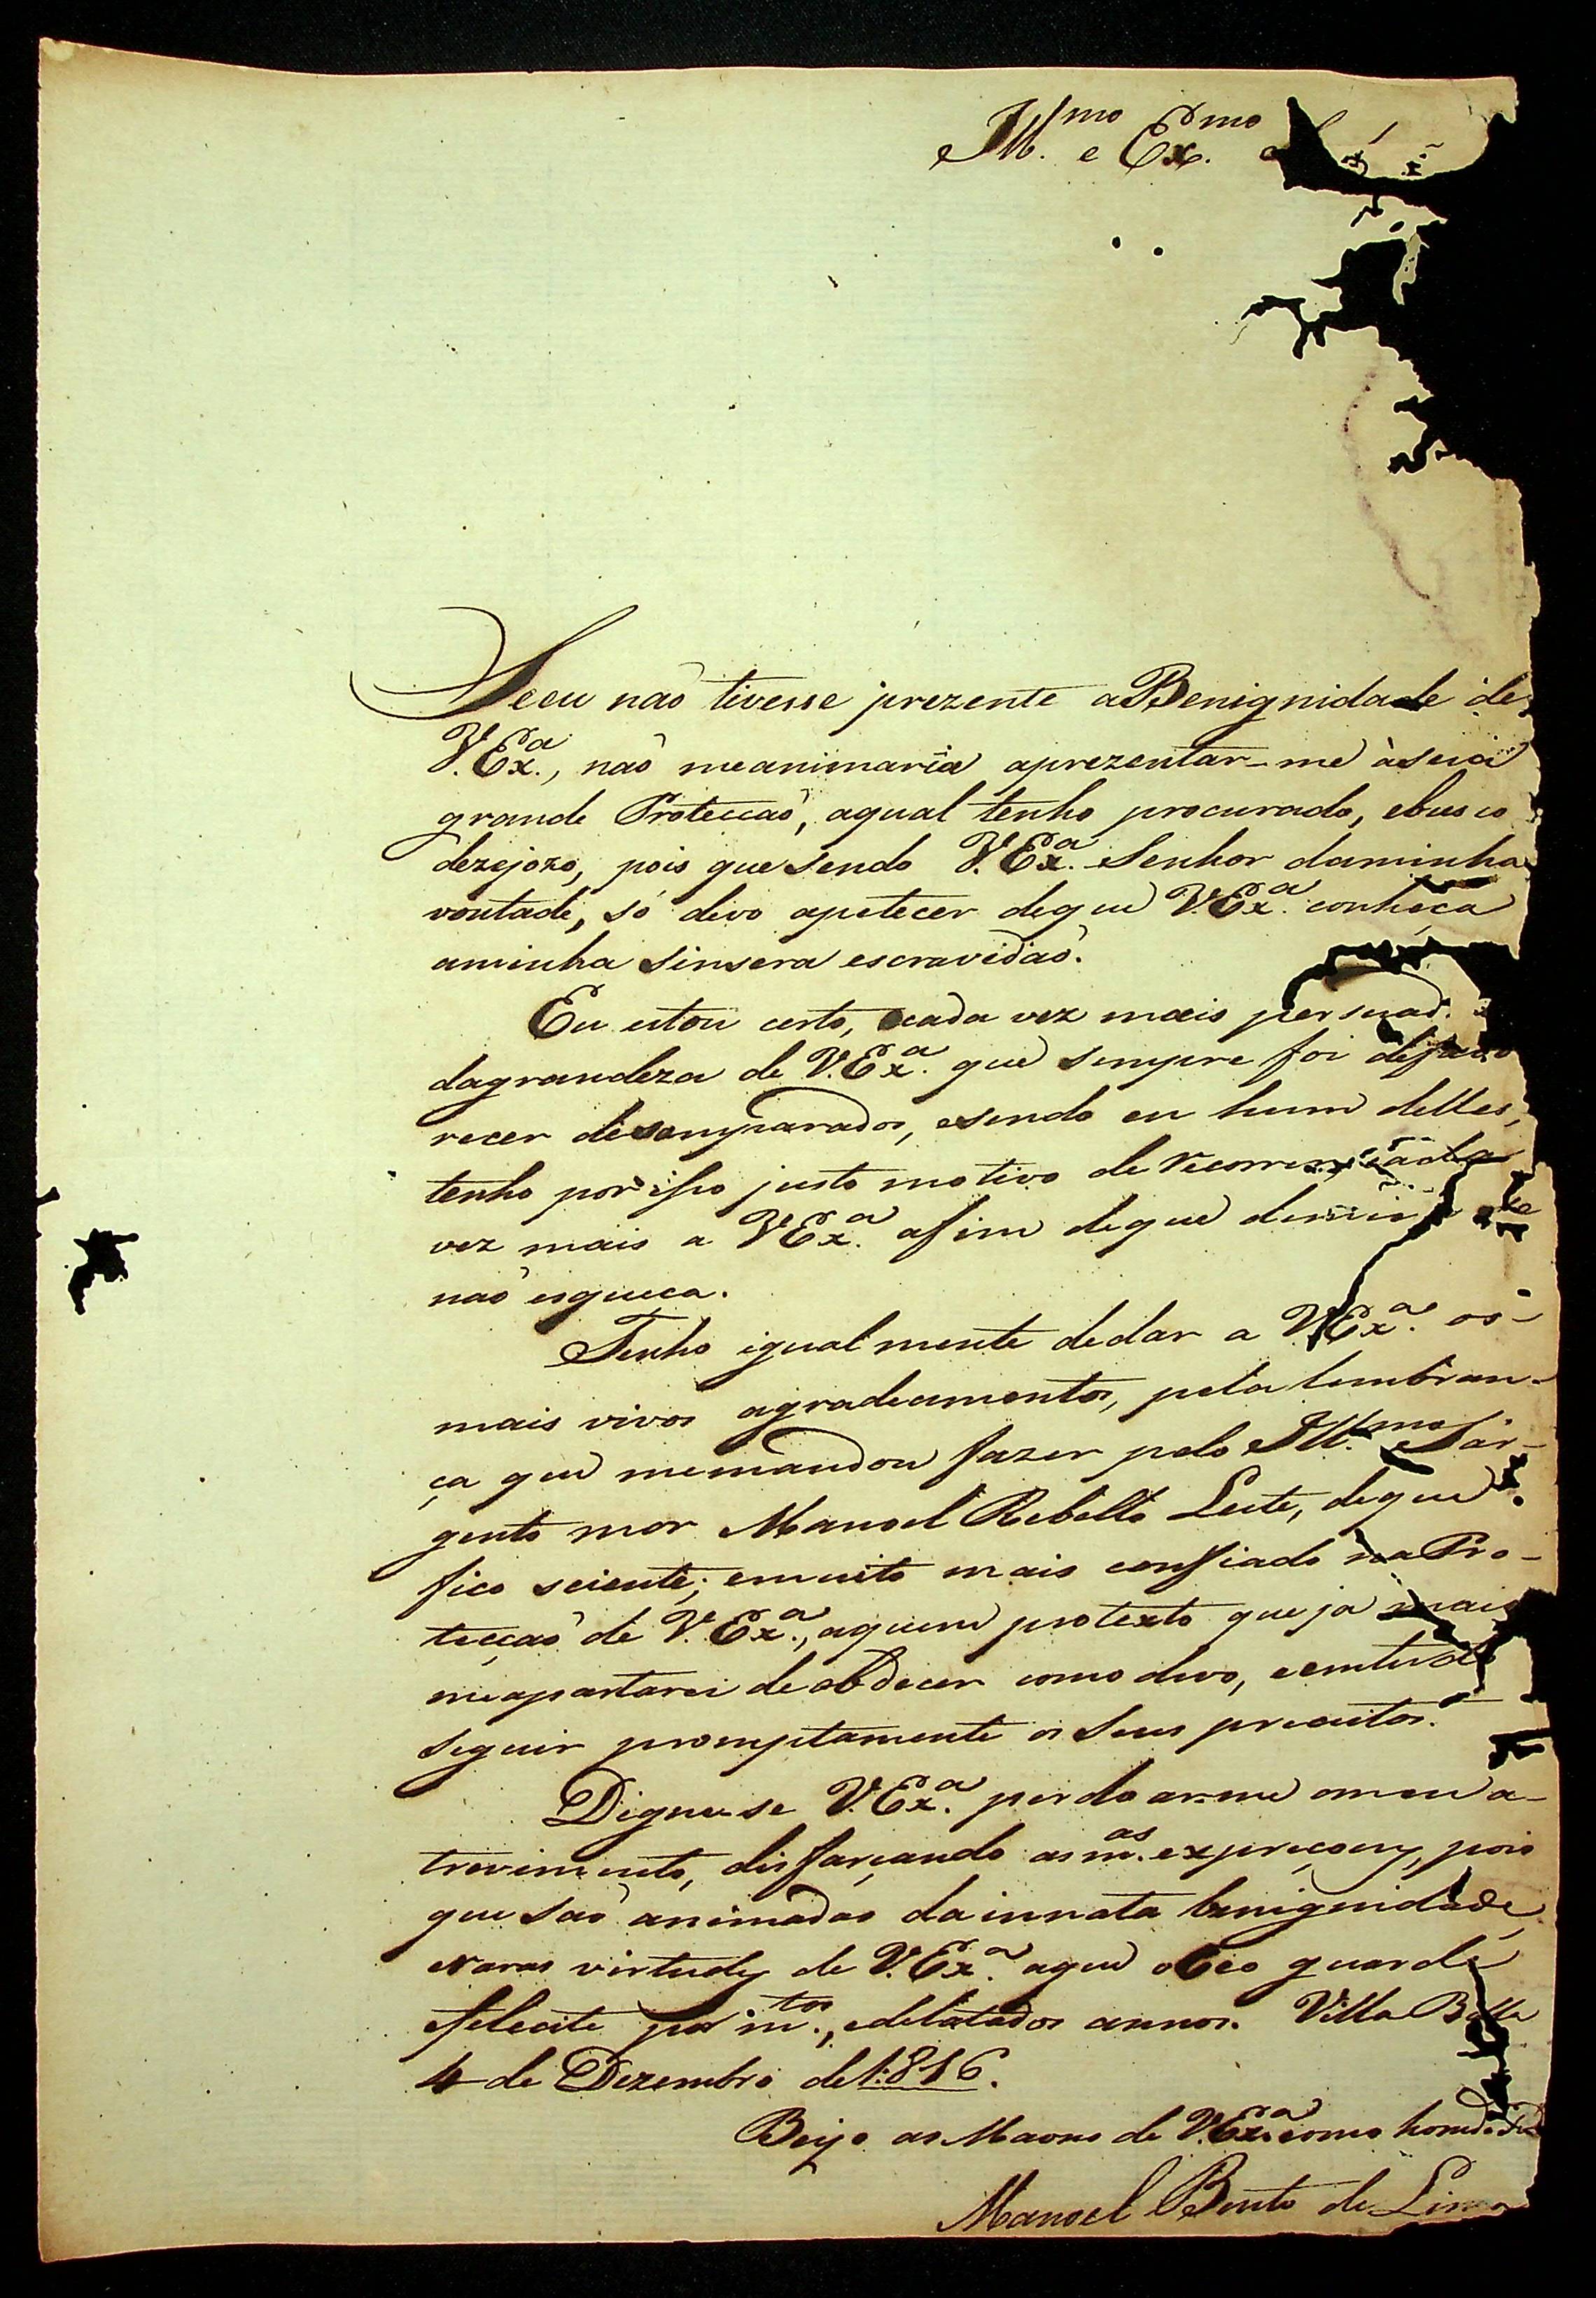 Ill.mo e Ex.mo
Seeu naõ tivesse prezente aBenignidade de
V.Ex.a, naõ meanimaria aprezentar-me àsua
grande Protecçaõ, aqual tenho procurado, ebusco
dezejozo, pois quesendo V.Ex.a Senhor daminha
vontade, só devo apetecer deque V.Ex.a conheça
aminha sinsera escravidaõ.
Eu estou certo, ecada vez mais persuad.
dagrandeza de V.Ex.a que sempre foi defavo
recer desamparados, esendo eu hum delles,
tenho porisso justo motivo de
vez mais a V.Ex.a afim deque
naõ esqueca.
Tenho igualmente dedar a V.Ex.a os
mais vivos agradecimentos, pela lembran-
ça que memandou fazer pelo Ill.mo Sar-
gento mor Manoel Rebello Leite, deque
fico sciente; emuito mais confiado naPro-
tecçaõ de V.Ex.a, aquem protexto que ja mais
meapartarei deobdecer como devo, eemtudo
seguir promptamente os seus preceitos.
Digne-se V.Ex.a perdoar-me omeu a-
trevimento, disfarçando as m.as expreçoens, pois
que saõ animadas dainnata benignidade,
eraras virtudes de V.Ex.a aque oCeo guarde
efelecite por m.tos, edelatados annos. Villa Bella
4 de Dezembro de1:816.
Beijo as Maons de V.Ex.a como
Manoel Bento de Lima